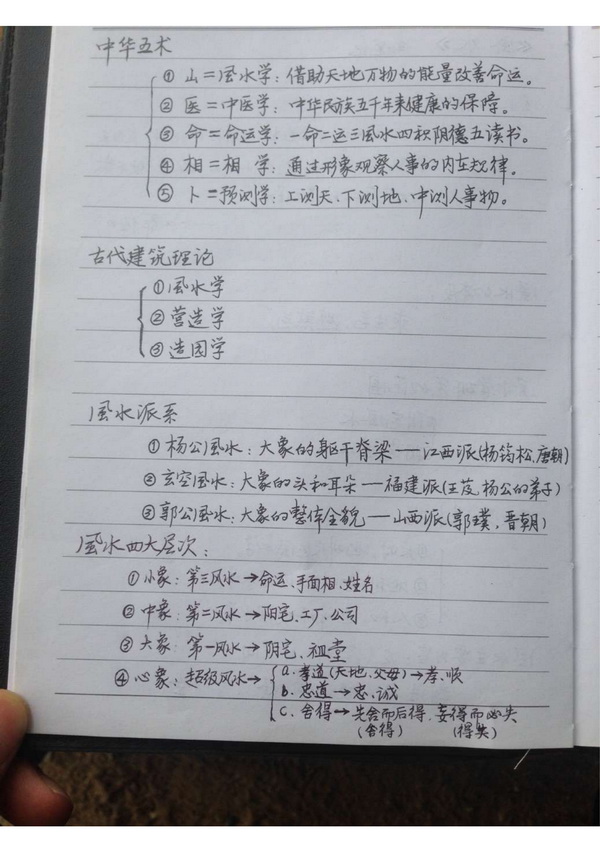 中华五术
① 山=风水学：借助天地万物的能量改善命运。
② 医=中医学：中华民族五千年来健康的保障。
③ 命=命运学：一命二运三风水四积阴德五读书。
④ 相=相 学：通过形象观察人事的内在规律。
⑤ 卜=预测学：上测天、下测地、中测人事物。
古代建筑理论
① 风水学
② 营造学
③ 造园学
风水派系
① 杨公风水：大象的躯干脊梁——江西派(杨筠松,唐朝)
② 玄空风水：大象的头和耳朵——福建派(王芨,杨公的弟子)
③ 郭公风水：大象的整体全貌——山西派(郭璞,晋朝)
风水四大层次：
① 小象：第三风水→命运、手面相、姓名
② 中象：第二风水→阳宅、工厂、公司
③ 大象：第一风水→阴宅、祖堂
④ 心象：超级风水→
a. 孝道(天地、父母)→孝、顺
b. 忠道→忠、诚
c. 舍得→先舍而后得，妄得而必失
(舍得) (得失)